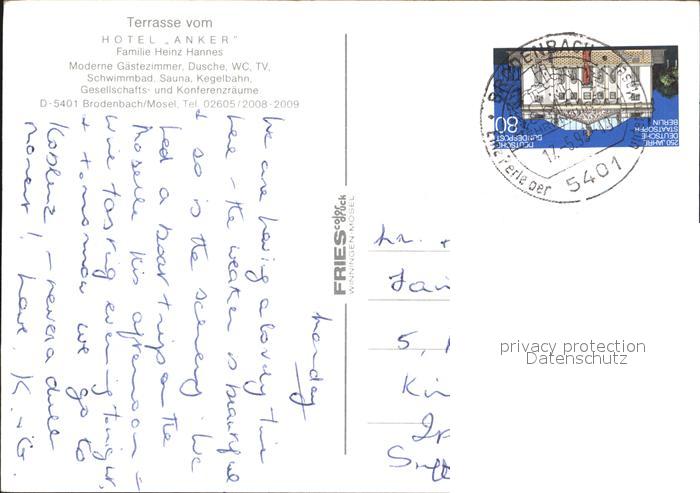 Terrasse vom
HOTEL „ANKER"
Familie Heinz Hannes
Moderne Gästezimmer, Dusche, WC, TV,
Schwimmbad, Sauna, Kegelbahn,
Gesellschafts- und Konferenzräume
D-5401 Brodenbach/Mosel, Tel. 02605/2008-2009
Monday
We are having a lovely time
here - the weather is beautiful
& so is the scenery. We
had a boat trip on the
Moselle this afternoon -
wine tasting evening tonight,
& tomorrow we go to
Koblenz - never a dull
moment! Love, K. & G.
FRIES color druck
WINNINGEN-MOSEL
250 JAHRE
DEUTSCHE
STAATSOPER
BERLIN
DEUTSCHE
BUNDESPOST
80
BRODENBACH
Perle der
5401
5,
privacy protection
Datenschutz